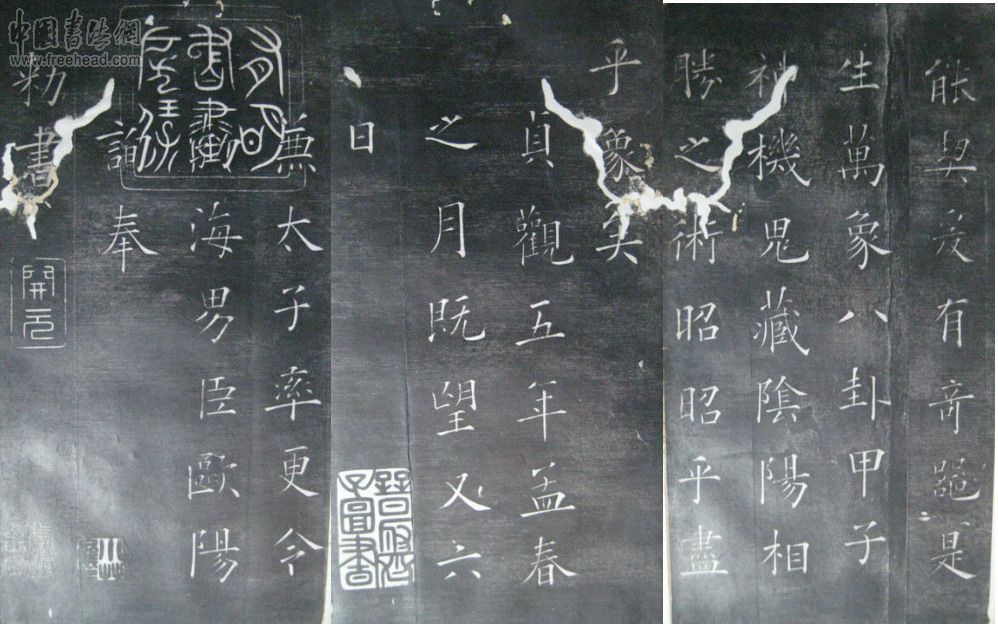 能契爰有奇器是
生萬象八卦甲子
神機鬼藏陰陽相
勝之術昭昭乎盡
乎象矣
貞觀五年孟春
之月既望又六
日
兼太子率更令
渤海男臣歐陽
詢奉
勑書
開元
中国书法网
www.freehead.com